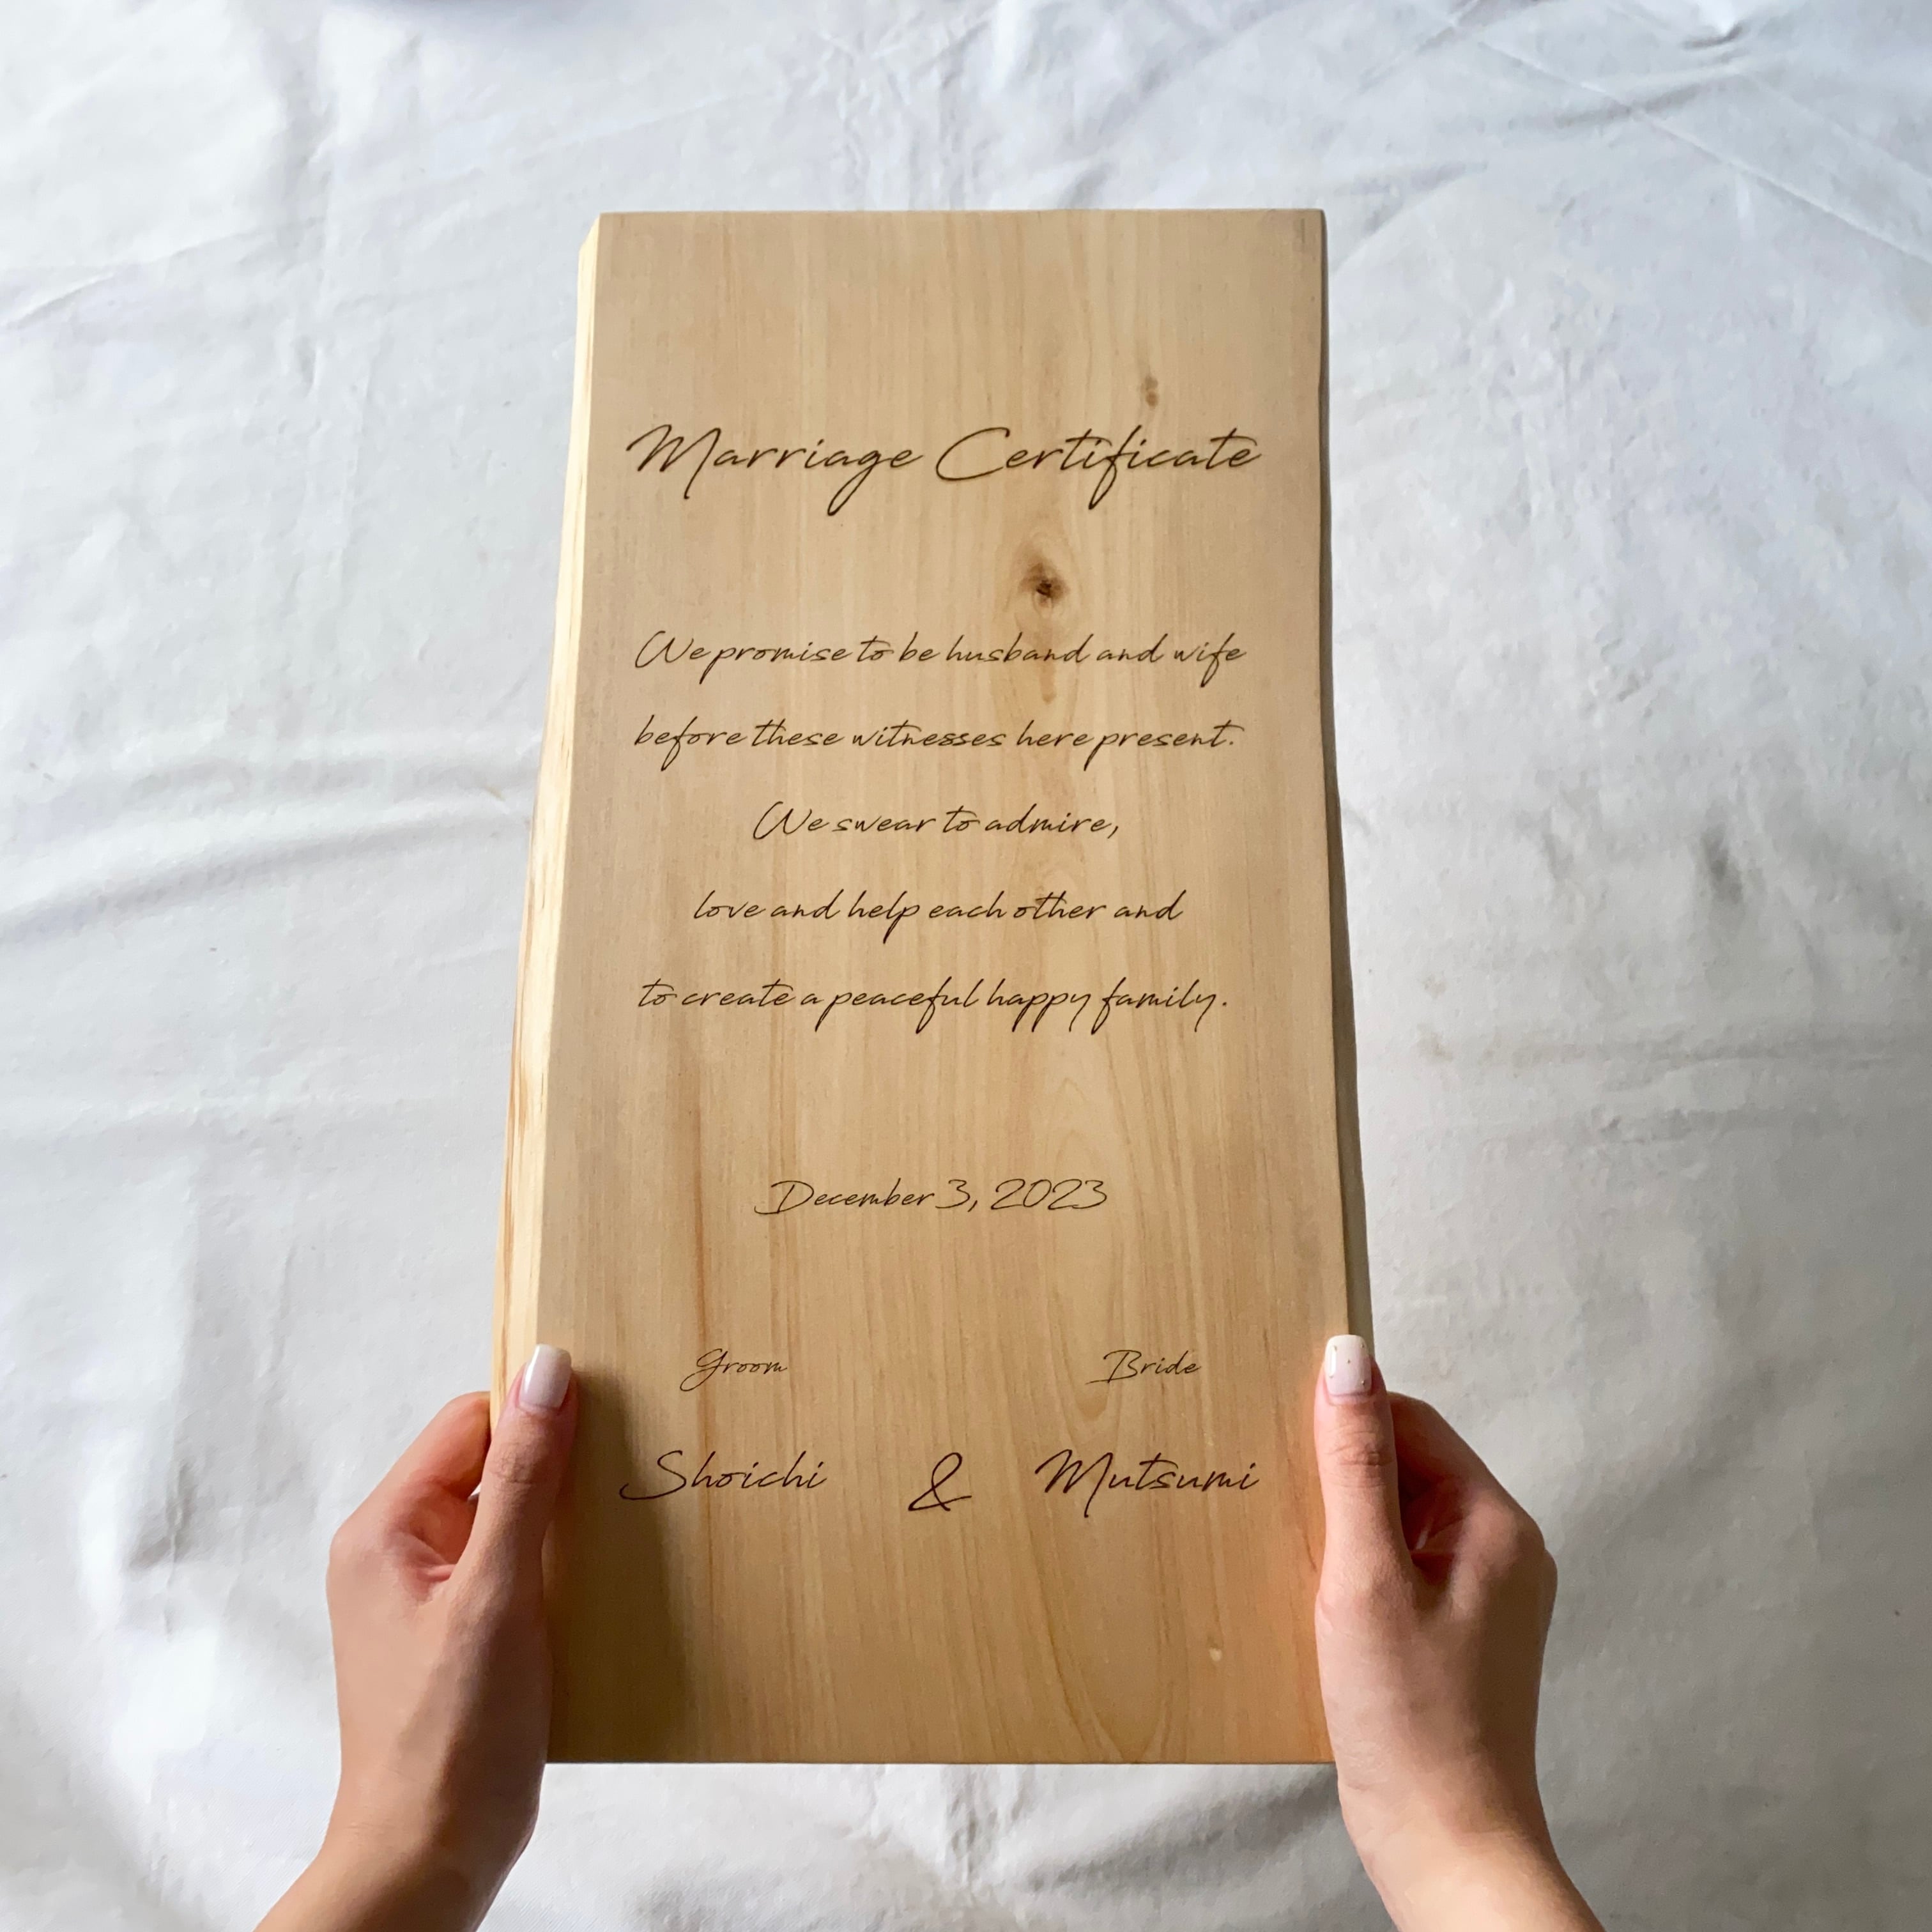 Marriage Certificate
We promise to be husband and wife
before these witnesses here present.
We swear to admire,
love and help each other and
to create a peaceful happy family.
December 3, 2023
Groom Bride
Shoichi & Mutsumi